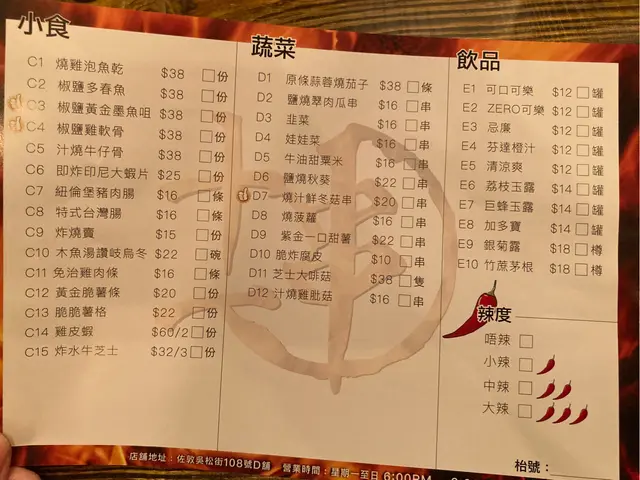 小食
C1 燒雞泡魚乾 $38 份
C2 椒鹽多春魚 $38 份
C3 椒鹽黃金墨魚咀 $38 份
C4 椒鹽雞軟骨 $38 份
C5 汁燒牛仔骨 $38 份
C6 即炸印尼大蝦片 $25 份
C7 紐倫堡豬肉腸 $16 條
C8 特式台灣腸 $16 條
C9 炸燒賣 $15 份
C10 木魚湯讚岐烏冬 $22 碗
C11 免治雞肉條 $16 條
C12 黃金脆薯條 $20 份
C13 脆脆薯格 $22 份
C14 雞皮蝦 $60/2 份
C15 炸水牛芝士 $32/3 份
蔬菜
D1 原條蒜蓉燒茄子 $38 條
D2 鹽燒翠肉瓜串 $16 串
D3 韭菜 $16 串
D4 娃娃菜 $16 串
D5 牛油甜粟米 $16 串
D6 鹽燒秋葵 $22 串
D7 燒汁鮮冬菇串 $20 串
D8 燒菠蘿 $16 串
D9 紫金一口甜薯 $22 串
D10 脆炸腐皮 $10 串
D11 芝士大啡菇 $38 隻
D12 汁燒雞肶菇 $16 串
飲品
E1 可口可樂 $12 罐
E2 ZERO可樂 $12 罐
E3 忌廉 $12 罐
E4 芬達橙汁 $12 罐
E5 清涼爽 $12 罐
E6 荔枝玉露 $14 罐
E7 巨蜂玉露 $14 罐
E8 加多寶 $14 罐
E9 銀菊露 $18 樽
E10 竹蔗茅根 $18 樽
辣度
唔辣
小辣
中辣
大辣
枱號：
店舖地址：佐敦吳松街108號D舖 營業時間：星期一至日 6:00PM